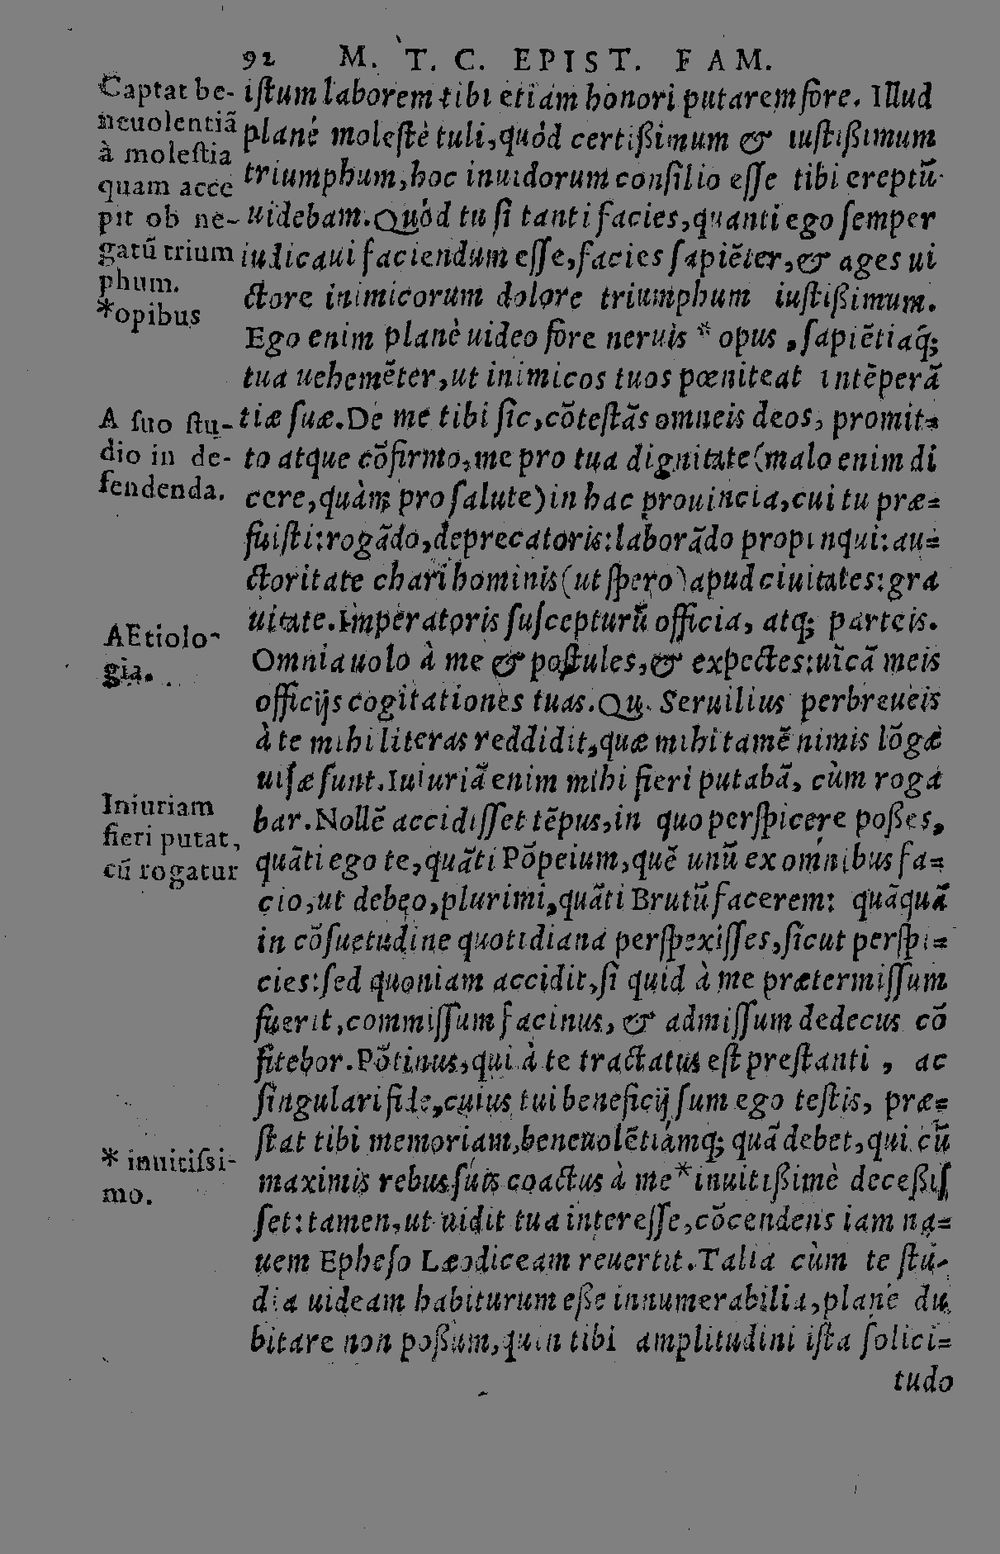 92 M. T. C. EPIST. FAM.
Captat be-
neuolentiã
à molestia
quam acce
pit ob ne-
gatũ trium
phum.
*opibus
A suo stu-
dio in de-
fendenda.
AEtiolo-
gia.
Iniuriam
fieri putat,
cũ rogatur
* inuitissi-
mo.
istum laborem tibi etiam honori putarem fore. Illud
planè molestè tuli, quòd certißimum & iustißimum
triumphum, hoc inuidorum consilio esse tibi ereptũ
uidebam. Quòd tu si tanti facies, quanti ego semper
iudicaui faciendum esse, facies sapiẽter, & ages ui
ctore inimicorum dolore triumphum iustißimum.
Ego enim planè uideo fore neruis * opus, sapiẽtiaq́;
tua uehemẽter, ut inimicos tuos pœniteat intẽperã
tiæ suæ. De me tibi sic, cõtestãs omneis deos, promit-
to atque cõfirmo, me pro tua dignitate (malo enim di
cere, quàm pro salute) in hac prouincia, cui tu præ-
fuisti: rogãdo, deprecatoris: laborãdo propinqui: au-
ctoritate chari hominis (ut spero) apud ciuitates: gra
uitate. Imperatoris suscepturũ officia, atq; parteis.
Omnia uolo à me & postules, & expectes: uĩcã meis
officijs cogitationes tuas. Qu. Seruilius perbreueis
à te mihi literas reddidit, quæ mihi tamẽ nimis lõgæ
uisæ sunt. Iniuriã enim mihi fieri putabã, cùm roga
bar. Nollẽ accidisset tẽpus, in quo perspicere poßes,
quãti ego te, quãti Põpeium, quẽ unũ ex omnibus fa-
cio, ut debeo, plurimi, quãti Brutũ facerem: quãquã
in cõsuetudine quotidiana perspexisses, sicut perspi-
cies: sed quoniam accidit, si quid à me prætermissum
fuerit, commissum facinus, & admissum dedecus cõ
fitebor. Põtinus, qui à te tractatus est prestanti, ac
singulari fide, cuius tui beneficij sum ego testis, præ-
stat tibi memoriam, beneuolẽtiámq; quã debet, qui cũ
maximis rebus suis coactus à me * inuitißimè deceßis
set: tamen, ut uidit tua interesse, cõcendens iam na-
uem Epheso Læodiceam reuertit. Talia cùm te stu-
dia uideam habiturum eße innumerabilia, planè du
bitare non poßum, quin tibi amplitudini ista solici-
tudo